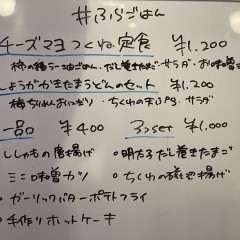 #ふらごはん
チーズマヨつくね定食 ¥1,200
柿の種ラー油ごはん・だし巻きたまご・サラダ・お味噌汁
しょうがかきたまうどんのセット ¥1,200
梅ちりめんおにぎり・ちくわの天ぷら・サラダ
一品 ¥400 3つset ¥1,000
・ししゃもの唐揚げ ・明太だし巻きたまご
・ミニ味噌カツ ・ちくわの磯辺揚げ
・ガーリックバターポテトフライ
・手作りホットケーキ